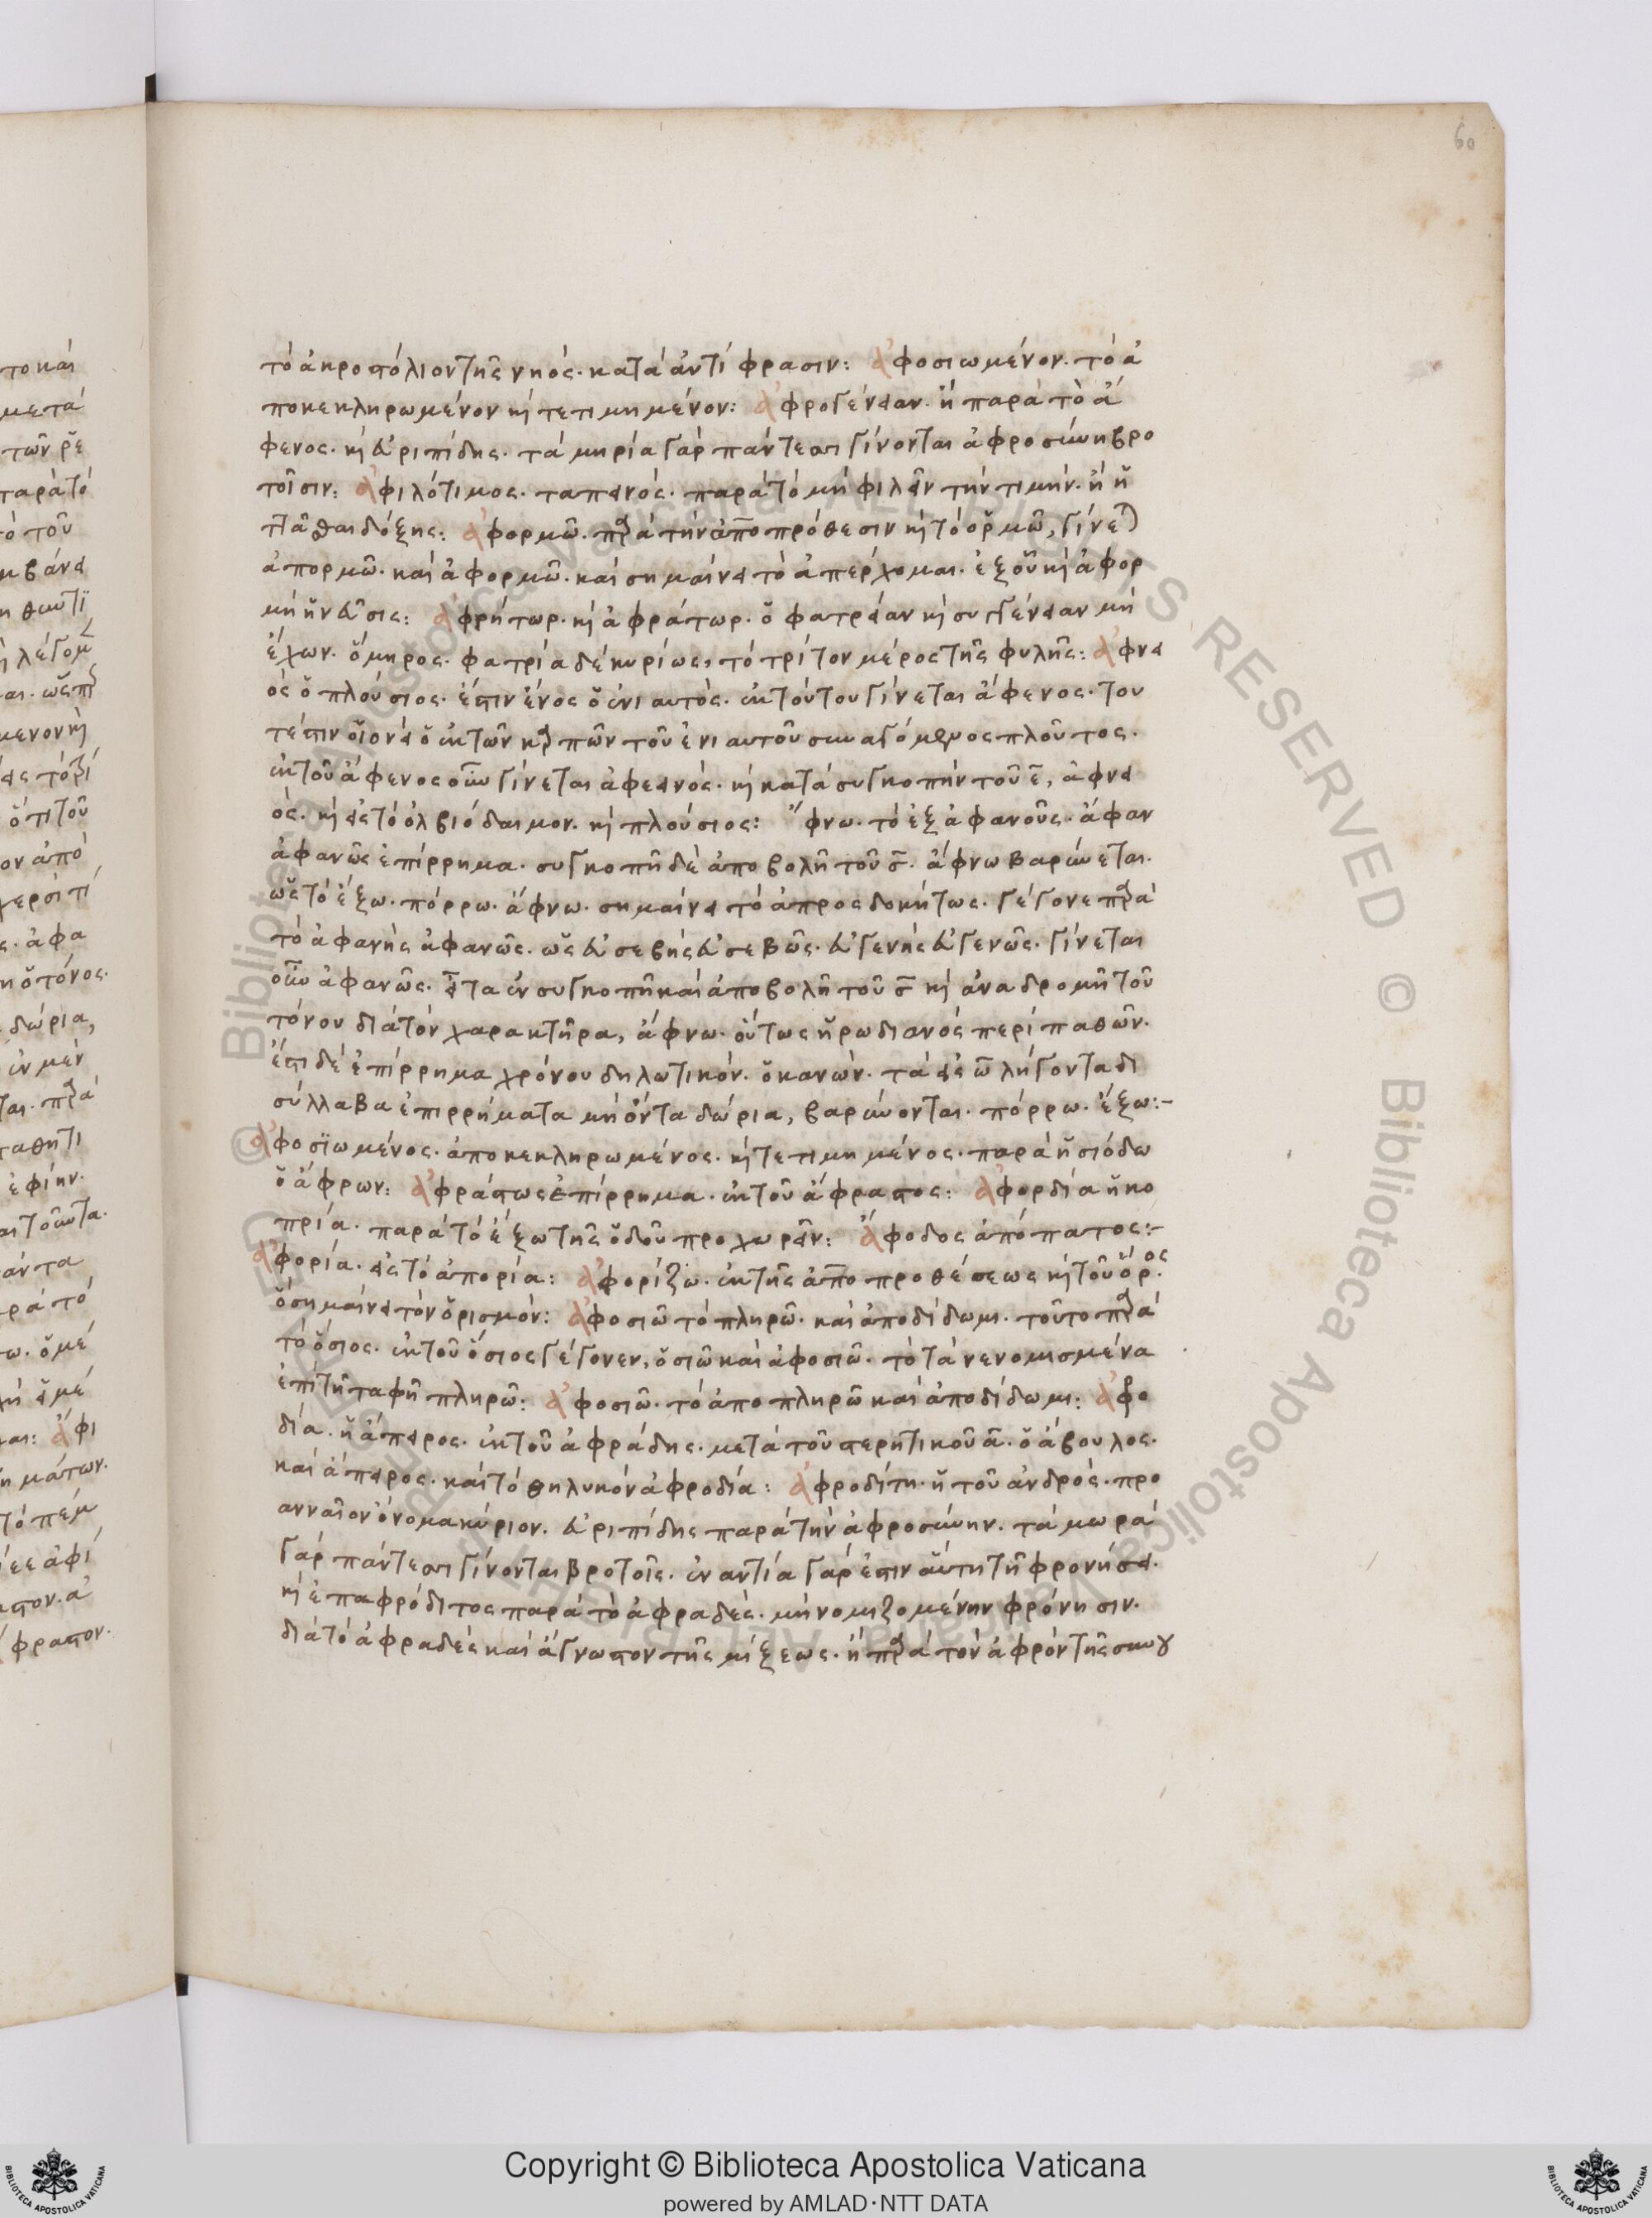 60
τὸ ἀκροστόλιον τῆς νηός· κατὰ ἀντίφρασιν: ἀφοσιωμένον· τὸ ἀ
ποκεκληρωμένον κ τετιμημένον: ἀφρογένειαν· ἢ παρὰ τὸ ἄ
φενος· κ εὐριπίδης· τὰ μηρία γὰρ πάντ ἐστι γίνονται ἀφροσύνη βρο
τοῖσιν: ἀφιλότιμος· ταπεινός· παρὰ τὸ μὴ φιλεῖν τὴν τιμήν· ἢ ἡ
δόξης: ἀφορμῶ· παρὰ τὴν ἀπο πρόθεσιν κ τὸ ὁρμῶ, γίνεται
ἀπορμῶ· καὶ ἀφορμῶ· καὶ σημαίνει τὸ ἀπέρχομαι· ἐξ οὗ κ ἀφορ
μὴ ἡ εὖσις: ἀφρήτωρ· κ ἀφράτωρ· ὁ φατρείαν κ συγγένειαν μὴ
ἔχων· ὅμηρος· φατρία δὲ κυρίως, τὸ τρίτον μέρος τῆς φυλῆς: ἀφνει
ὸς ὁ πλούσιος· ἔστιν ἕνος ὁ ἐνιαυτός· ἐκ τούτου γίνεται ἄφενος· του
τέστιν οἱονεὶ ὁ ἐκ τῶν καρπῶν τοῦ ἐνιαυτοῦ συναγόμενος πλοῦτος·
ἐκ τοῦ ἄφενος οὖν γίνεται ἀφεεινός· κ κατὰ συγκοπὴν τοῦ ε, ἀφνει
ός· κ εἰς τὸ ὀλβιόδαιμον· κ πλούσιος: ἄφνω· τὸ ἐξ ἀφανοῦς· ἄφαν
ἀφανῶς ἐπίρρημα· συγκοπῆ δὲ ἀποβολῆ τοῦ σ· ἄφνω βαρύνεται·
ὡς τὸ ἔξω· πόρρω· ἄφνω· σημαίνει τὸ ἀπροσδοκήτως· γέγονε παρὰ
τὸ ἀφανὴς ἀφανῶς· ὡς εὐσεβὴς εὐσεβῶς· εὐγενὴς εὐγενῶς· γίνεται
οὖν ἀφανῶς· εἶτα ἐν συγκοπῆ καὶ ἀποβολῆ τοῦ σ κ ἀναδρομῆ τοῦ
τόνου διὰ τὸν χαρακτῆρα, ἄφνω· οὕτως ἡρωδιανὸς περὶ παθῶν·
ἔστι δὲ ἐπίρρημα χρόνου δηλωτικόν· ὁ κανών· τὰ εἰς ω λήγοντα δι
σύλλαβα ἐπιρρήματα μὴ ὄντα δώρια, βαρύνονται· πόρρω· ἔξω:-
ἀφοσϊωμένος· ἀποκεκληρωμένος· κ τετιμημένος· παρὰ ἡσιόδω
ὁ ἄφρων: ἀφράστως ἐπίρρημα· ἐκ τοῦ ἄφραστος: ἀφορδία ἡ κο
πρία· παρὰ τὸ ἔξω τῆς ὁδοῦ προχωρεῖν: ἄφοδος ἀπόπατος:-
ἀφορία· εἰς τὸ ἀπορία: ἀφορίζω· ἐκ τῆς ἀπο προθέσεως κ τοῦ ὅρος
ὃ σημαίνει τὸν ὁρισμόν: ἀφοσιῶ τὸ πληρῶ· καὶ ἀποδίδωμι· τοῦτο παρὰ
τὸ ὅσιος· ἐκ τοῦ ὅσιος γέγονεν, ὁσιῶ καὶ ἀφοσιῶ· τὸ τὰ νενομισμένα
ἐπὶ τῆ ταφῆ πληρῶ: ἀφοσιῶ· τὸ ἀποπληρῶ καὶ ἀποδίδωμι: ἀφρο
δία· ἡ ἄπειρος· ἐκ τοῦ ἀφράδης· μετὰ τοῦ στερητικοῦ α· ὁ ἄβουλος·
καὶ ἄπειρος· καὶ τὸ θηλυκὸν ἀφροδία: ἀφροδίτη· ἡ τοῦ ἀνδρός· προ
ανναῖον ὄνομα κύριον· εὐριπίδης παρὰ τὴν ἀφροσύνην· τὰ μωρὰ
γὰρ πάντ ἐστι γίνονται βροτοῖς· ἐναντία γάρ ἐστιν αὕτη τῆ φρονήσει·
κ ἐπαφρόδιτος παρὰ τὸ ἀφραδές· μὴ νομιζομένην φρόνησιν·
διὰ τὸ ἀφραδὲς καὶ ἄγνωστον τῆς μίξεως· ἢ παρὰ τὸν ἀφρὸν τῆς συνου
© Biblioteca Apostolica Vaticana ALL RIGHTS RESERVED
Copyright © Biblioteca Apostolica Vaticana
powered by AMLAD·NTT DATA
BIBLIOTECA APOSTOLICA VATICANA
BIBLIOTECA APOSTOLICA VATICANA